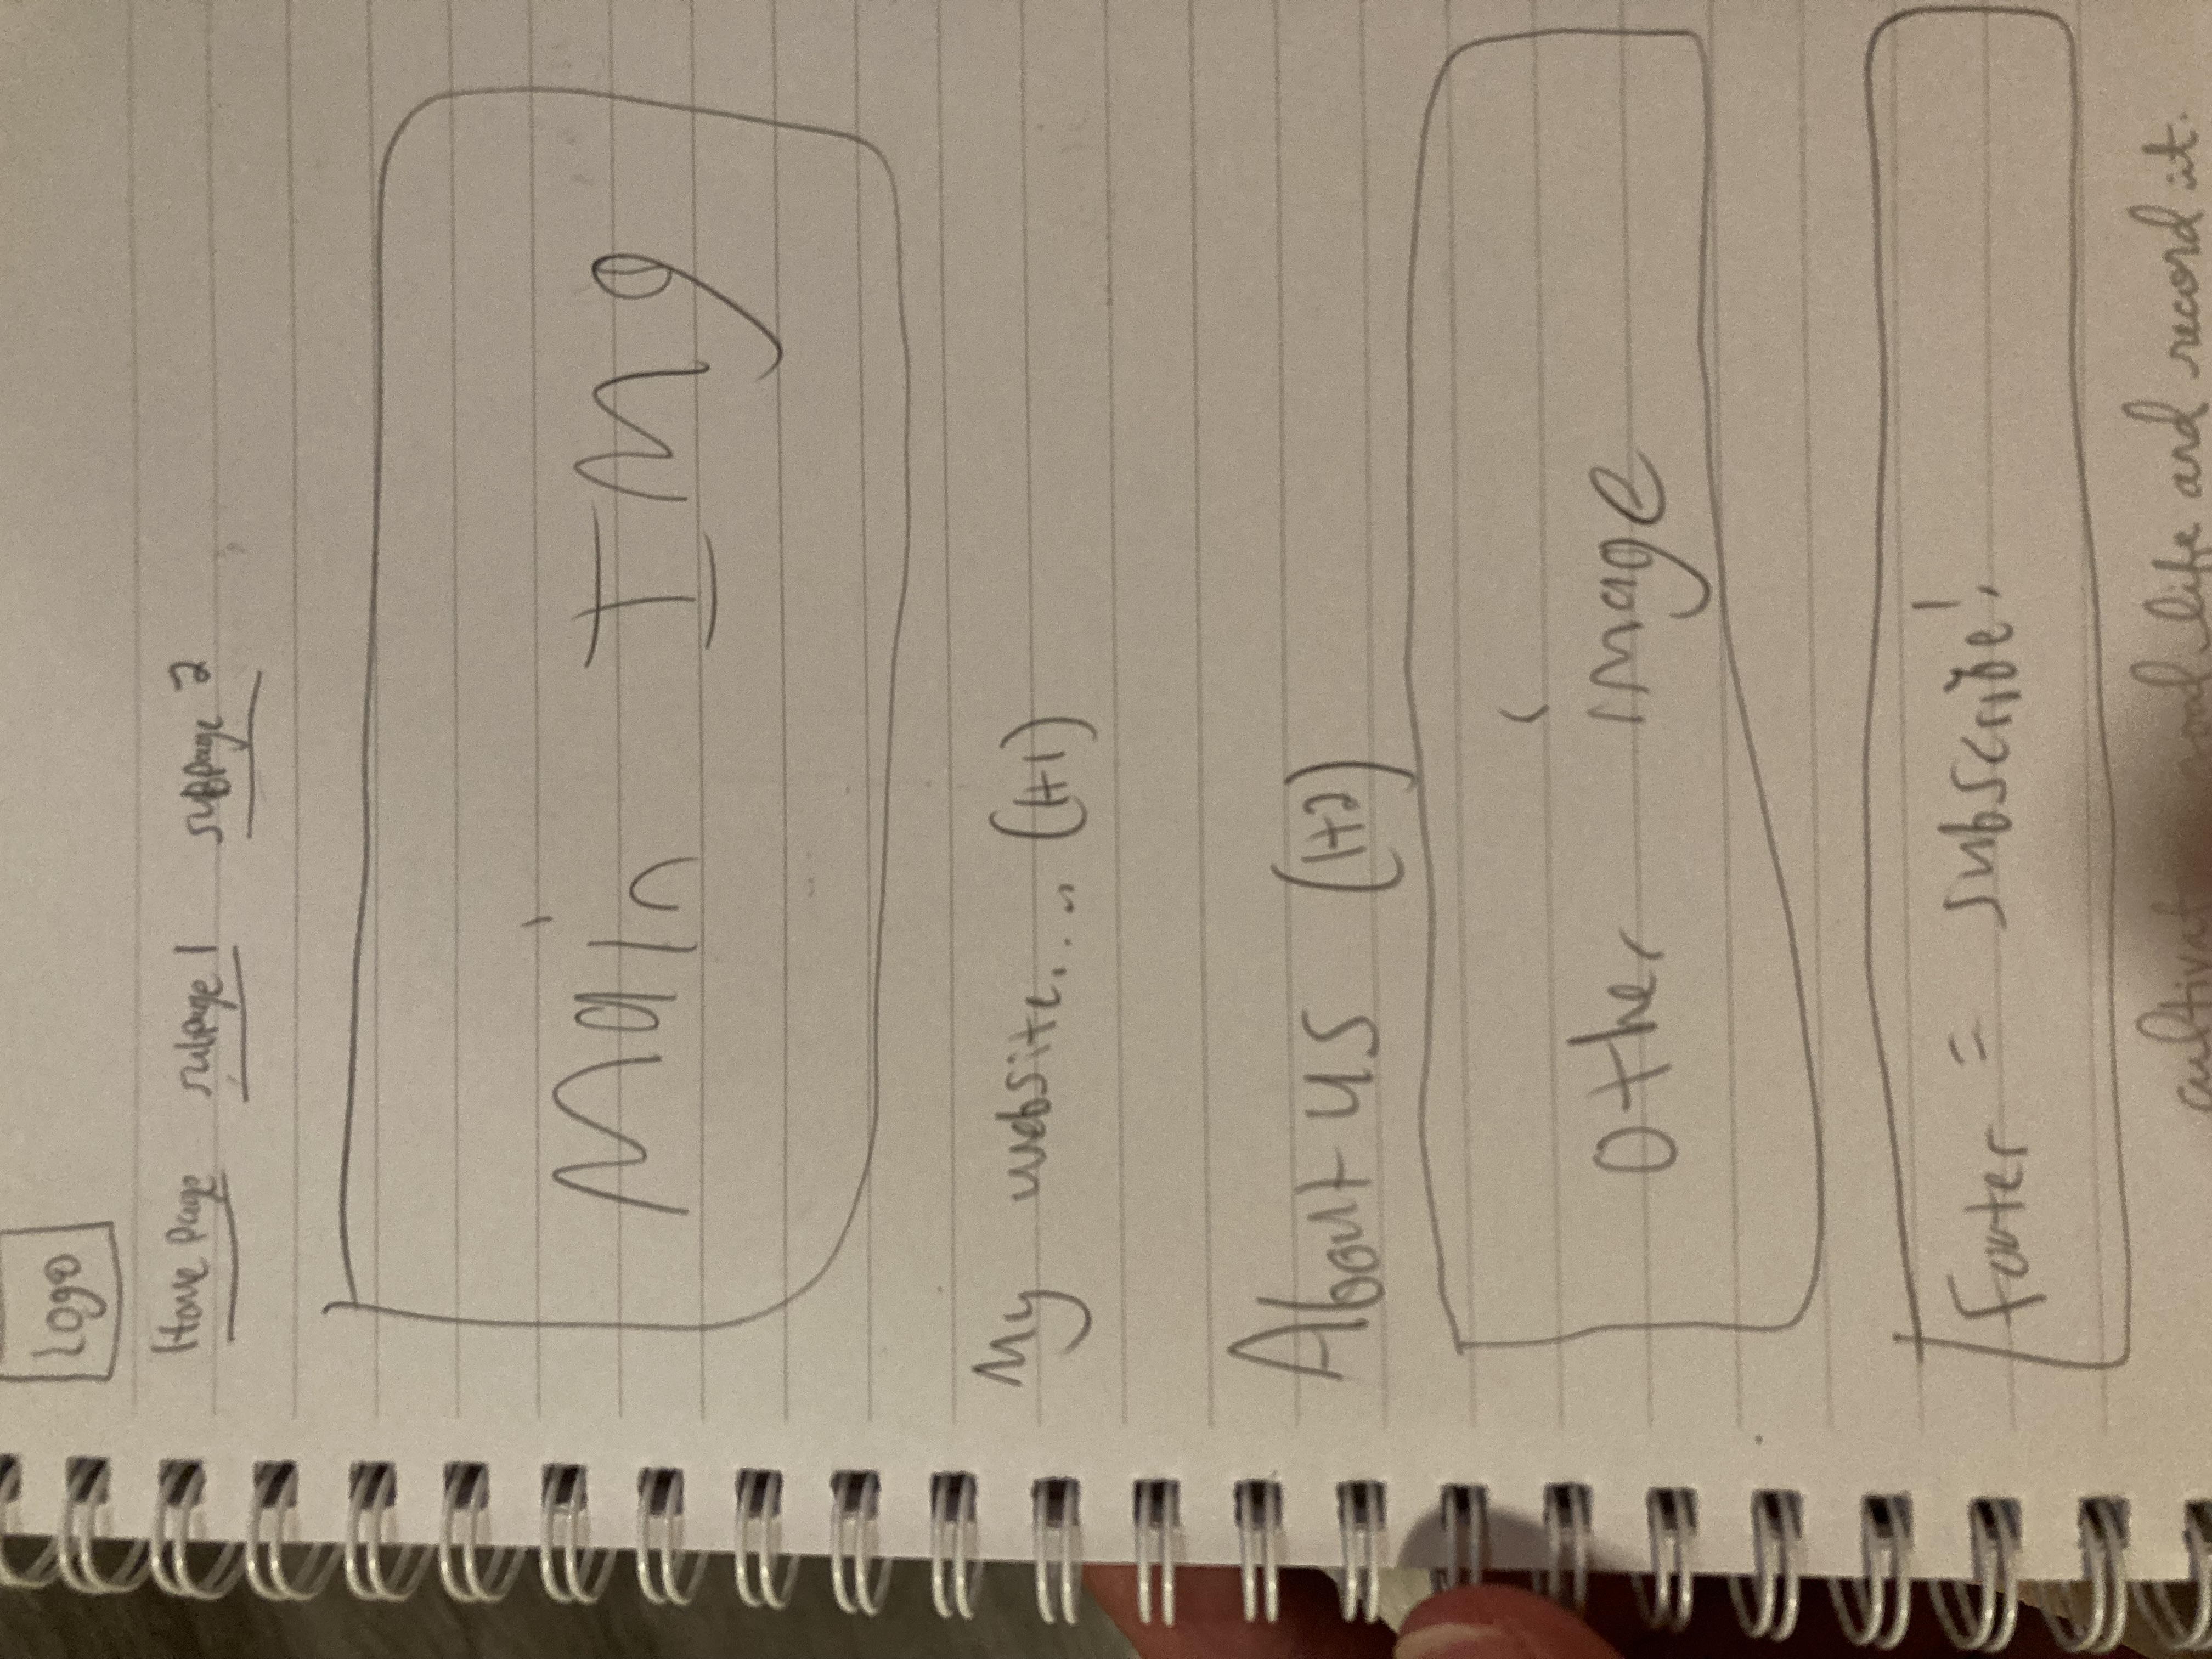 Logo
Home Page subpage 1 subpage 2
Main IMg
My website.... (H1)
About us (H2)
other image
Footer = subscribe!
good life and record it.